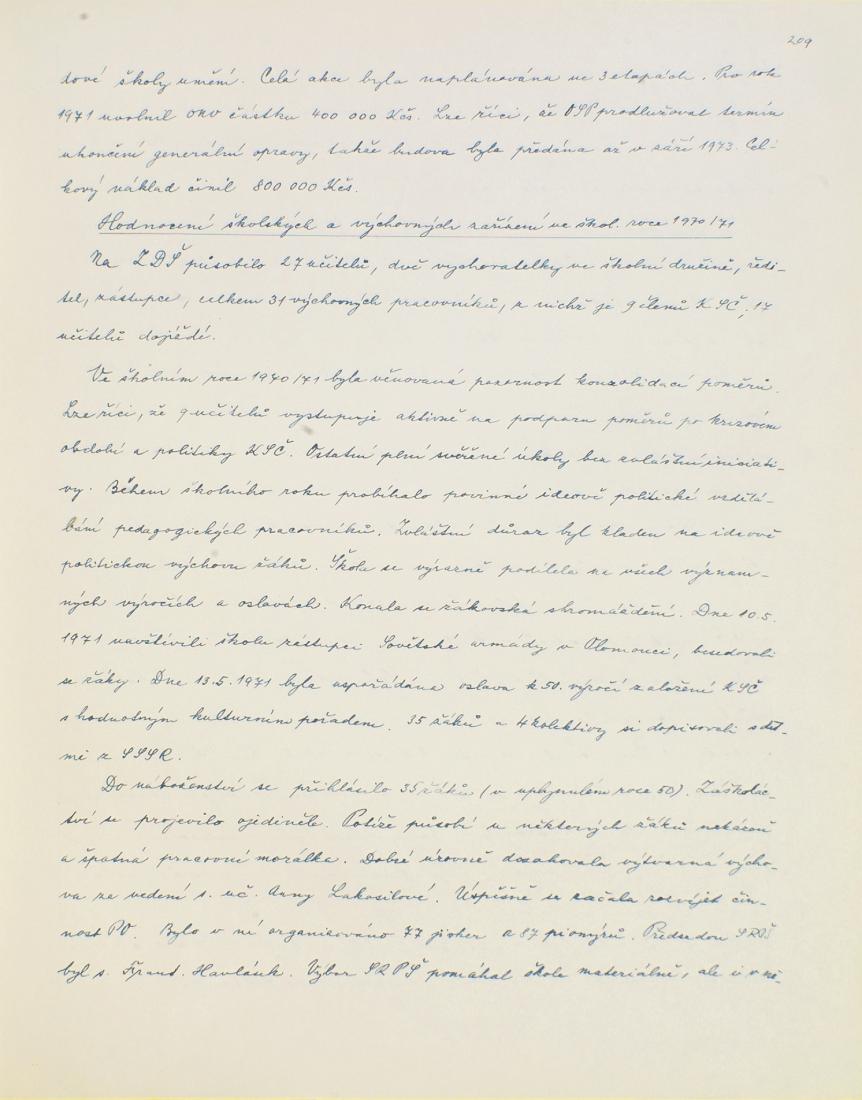 209
dové školy umění. Celá akce byla naplánována ve 3 etapách. Pro rok
1971 uvolnil ONV částku 400 000 Kčs. Lze říci, že OSP prodlužoval termín
ukončení generální opravy, takže budova byla předána až v září 1973. Cel-
kový náklad činil 800 000 Kčs.
Hodnocení školských a výchovných zařízení ve škol. roce 1970/71
Na ZDŠ působilo 27 učitelů, dvě vychovatelky ve školní družině, ředi-
tel, zástupce, celkem 31 výchovných pracovníků, z nichž je 9 členů KSČ, 17
učitelů dojíždí.
Ve školním roce 1970/71 byla věnovaná pozornost konzolidaci poměrů.
Lze říci, že 9 učitelů vystupuje aktivně na podporu poměrů po krizovém
období a politiky KSČ. Ostatní plní svěřené úkoly bez zvláštní iniciati-
vy. Během školního roku probíhalo povinné ideově politické vzdělá-
bání pedagogických pracovníků. Zvláštní důraz byl kladen na ideově
politickou výchovu žáků. Škola se výrazně podílela na všech význam-
ných výročích a oslavách. Konala se žákovská shromáždění. Dne 10.5.
1971 navštívili školu zástupci Sovětské armády v Olomouci, besedovali
se žáky. Dne 13.5.1971 byla uspořádána oslava k 50. výročí založení KSČ
s hodnotným kulturním pořadem. 35 žáků a 4 kolektivy si dopisovali s dět-
mi z SSSR.
Do náboženství se přihlásilo 35 žáků (v uplynulém roce 50). Záškolác-
tví se projevilo ojediněle. Potíže působí u některých žáků nekázeň
a špatná pracovní morálka. Dobré úrovně dosahovala výtvarná výcho-
va za vedení s. uč. Anny Lakosilové. Úspěšně se začala rozvíjet čin-
nost PO. Bylo v ní organizováno 77 jisker a 87 pionýrů. Předsedou SRPŠ
byl s. Frant. Havlásek. Výbor SRPŠ pomáhal škole materiálně, ale i v ně-